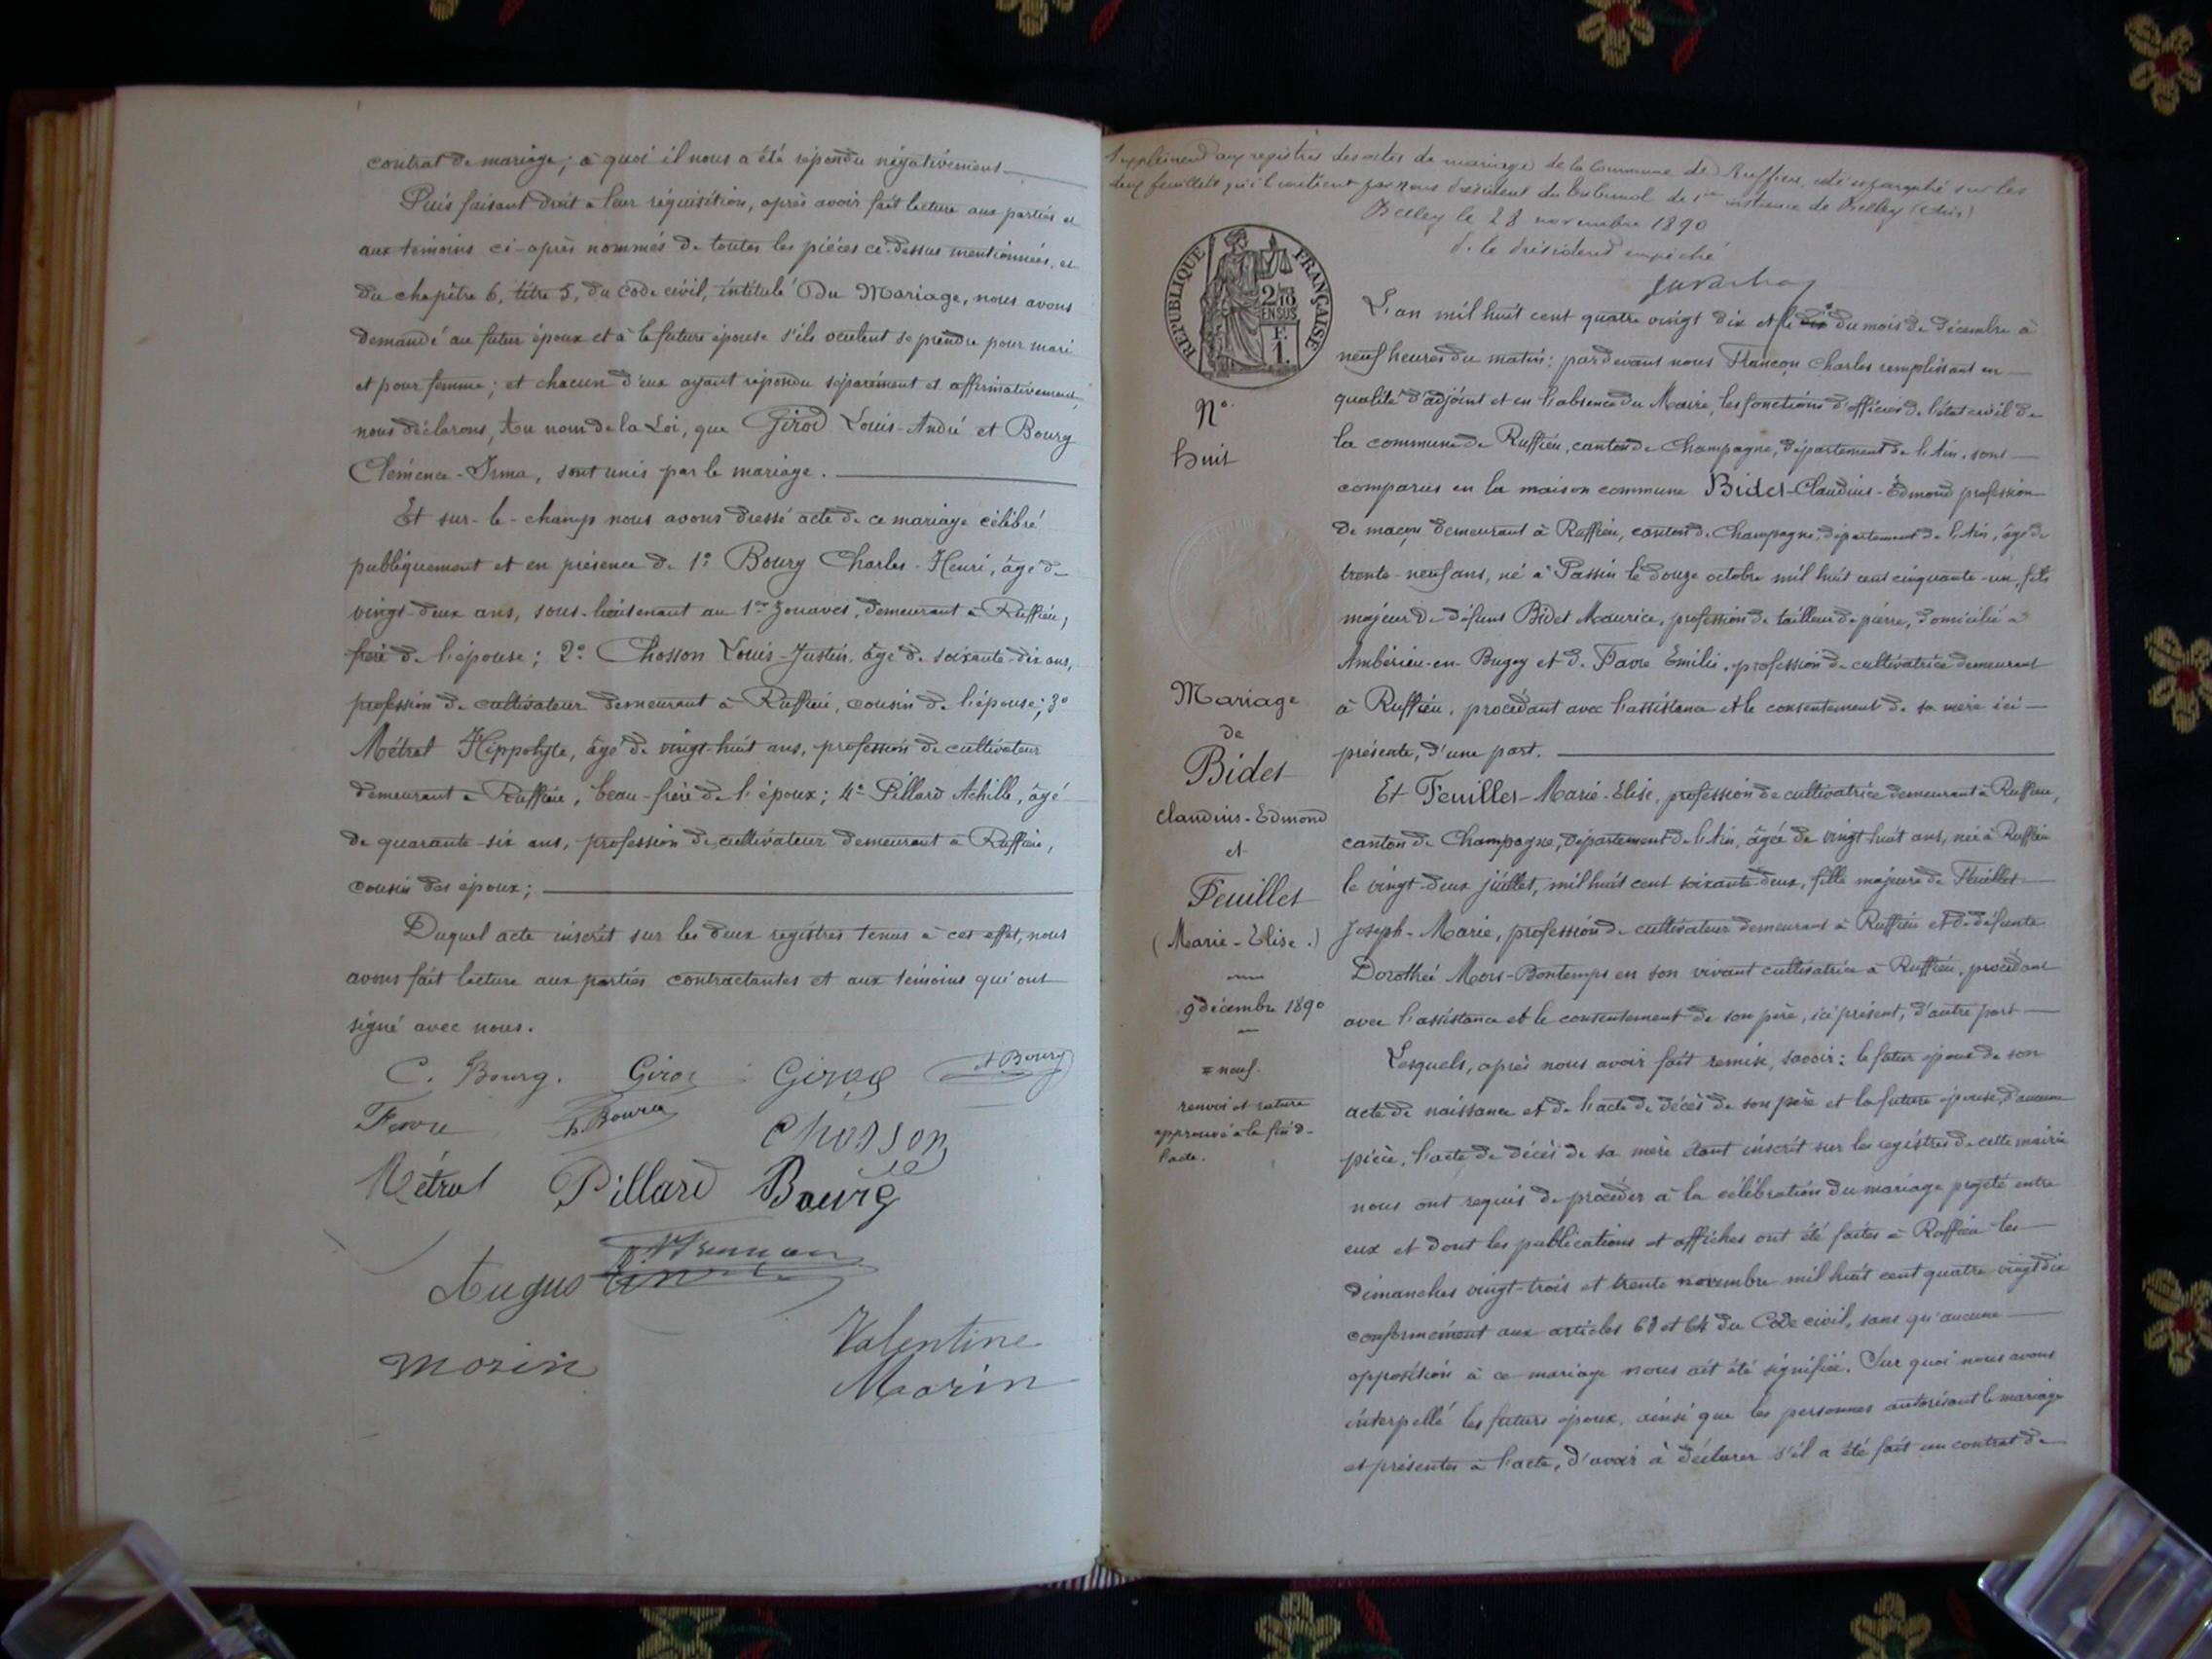 contrat de mariage; à quoi il nous a été répondu négativement
Puis faisant droit à leur réquisition, après avoir fait lecture aux parties et
aux témoins ci-après nommés de toutes les pièces ci-dessus mentionnées, et
du chapître 6, titre 5, du Code civil, intitulé Du Mariage, nous avons
demandé au futur époux et à la future épouse s'ils veulent se prendre pour mari
et pour femme; et chacun d'eux ayant répondu séparément et affirmativement,
nous déclarons, Au nom de la Loi, que Girod Louis-André et Bourg
Clémence-Irma, sont unis par le mariage.
Et sur-le-champ nous avons dressé acte de ce mariage célébré
publiquement et en présence de 1° Bourg Charles-Henri, âgé de
vingt-deux ans, sous-lieutenant au 1er Zouaves, demeurant à Ruffieu,
frère de l'épouse; 2° Chosson Louis-Justin, âgé de soixante-dix ans,
profession de cultivateur demeurant à Ruffieu, cousin de l'épouse; 3°
Métral Hippolyte, âgé de vingt-huit ans, profession de cultivateur
demeurant à Ruffieu, beau-frère de l'époux; 4° Pillard Achille, âgé
de quarante-six ans, profession de cultivateur demeurant à Ruffieu,
cousin des époux;
Duquel acte inscrit sur les deux registres tenus à cet effet, nous
avons fait lecture aux parties contractantes et aux témoins qui ont
signé avec nous.
C. Bourg. Girod Girod A. Bourg
Favre Bourg Chosson
Métral Pillard Bourg
Augustine
Morin Valentine
Marin
Supplément aux registres des actes de mariage de la Commune de Ruffieu, coté et paraphé sur les
deux feuillets qu'il contient par nous Président du tribunal de 1ère instance de Belley (Ain)
Belley le 28 novembre 1890
P. le Président empêché
RÉPUBLIQUE FRANÇAISE
2/10 EN SUS
1 F.
N°
huit
Mariage
de
Bidet
Claudius-Edmond
et
Feuillet
(Marie-Elise.)
9 décembre 1890
neuf.
renvoi et rature
approuvé à la fin de
l'acte.
L'an mil huit cent quatre vingt dix et le dix du mois de décembre à
neuf heures du matin: par devant nous Françon Charles remplissant en
qualité d'adjoint et en l'absence du Maire, les fonctions d'officier de l'état civil de
la commune de Ruffieu, canton de Champagne, département de l'Ain, sont
comparus en la maison commune Bidet-Claudius-Edmond profession
de maçon demeurant à Ruffieu, canton de Champagne, département de l'Ain, âgé de
trente-neuf ans, né à Passin le douze octobre mil huit cent cinquante-un, fils
majeur de défunt Bidet Maurice, profession de tailleur de pierre, domicilié à
Ambérieu-en-Bugey et de Favre Emilie, profession de cultivatrice demeurant
à Ruffieu, procédant avec l'assistance et le consentement de sa mère ici
présente, d'une part.
Et Feuillet-Marie-Elise, profession de cultivatrice demeurant à Ruffieu,
canton de Champagne, département de l'Ain, âgée de vingt-huit ans, née à Ruffieu
le vingt-deux juillet, mil huit cent soixante-deux, fille majeure de Feuillet
Joseph-Marie, profession de cultivateur demeurant à Ruffieu et de défunte
Dorothée Mors-Bontemps en son vivant cultivatrice à Ruffieu, procédant
avec l'assistance et le consentement de son père, ici présent, d'autre part
Lesquels, après nous avoir fait remise, savoir: le futur époux de son
acte de naissance et de l'acte de décès de son père et la future épouse, d'aucune
pièce, l'acte de décès de sa mère étant inscrit sur les registres de cette mairie
nous ont requis de procéder à la célébration du mariage projeté entre
eux et dont les publications et affiches ont été faites à Ruffieu les
dimanches vingt-trois et trente novembre mil huit cent quatre vingt dix
conformément aux articles 63 et 64 du Code civil, sans qu'aucune
opposition à ce mariage nous ait été signifiée. Sur quoi nous avons
interpellé les futurs époux, ainsi que les personnes autorisant le mariage
et présentes à l'acte, d'avoir à déclarer s'il a été fait un contrat de